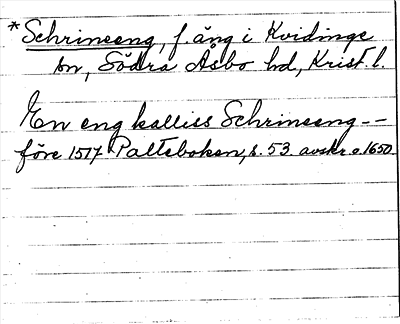 *Schrineeng, f. äng i Kvidinge
sn, Södra Åsbo hd, Krist. l.
En eng kalliss Schrineeng--
före 1517 Palteboken, s. 53. avskr. o. 1650.